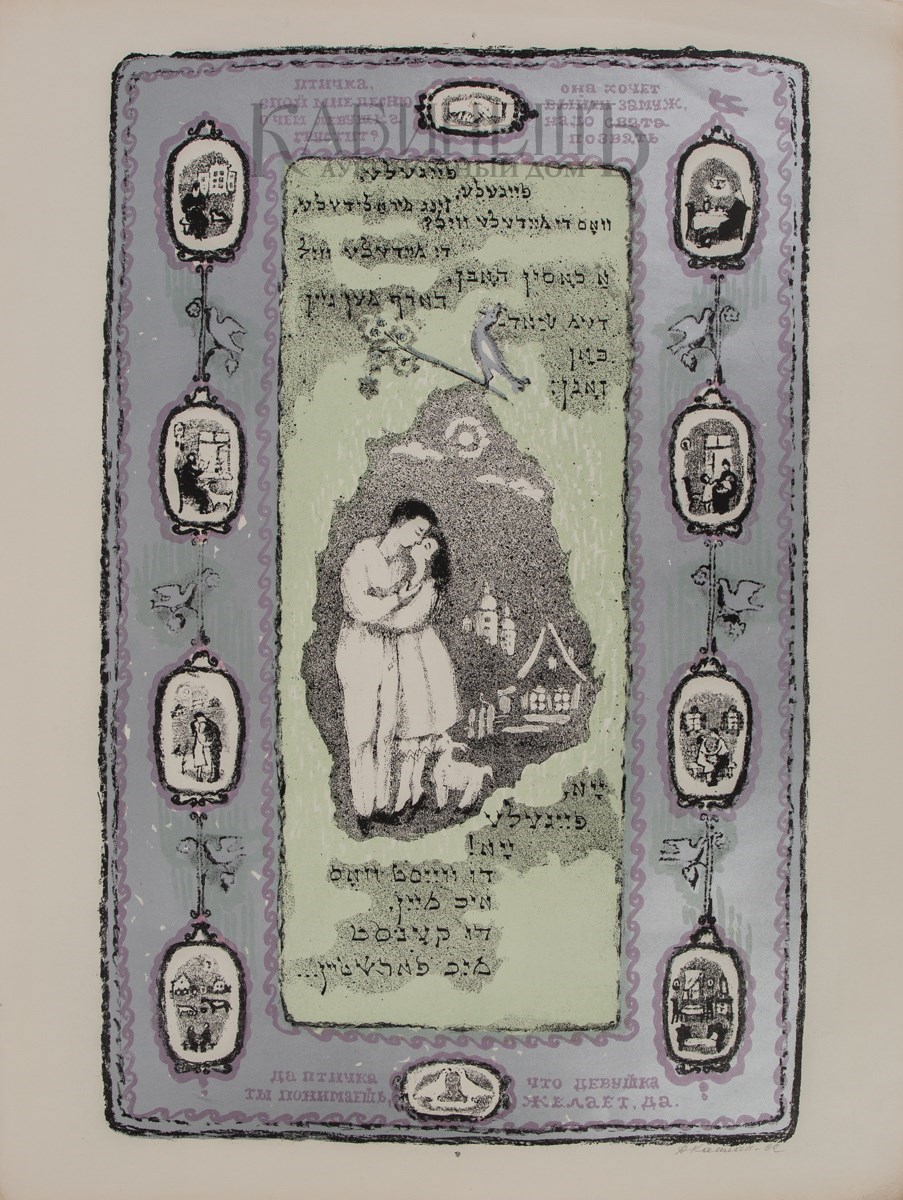 ПТИЧКА,
СПОЙ МНЕ ПЕСНЮ
О ЧЕМ ДЕВУШКА
ГРУСТИТ?
ОНА ХОЧЕТ
ВЫЙТИ ЗАМУЖ,
НАДО СВАТА
ПОЗВАТЬ
КАБИНЕТЪ
АУКЦИОННЫЙ ДОМ
פֿייגעלע,
פֿייגעלע,
זינג מיר אַ לידעלע,
וואָס די מיידעלע וויל?
די מיידעלע וויל
אַ כאָסין האָבן,
דארף מען גיין
דעם
זאָגן:
יאָ,
פייגעלע
יאָ!
דו ווייסט וואָס
איכ מיין,
דו קענסט
מיכ פארשטיין...
ДА ПТИЧКА
ТЫ ПОНИМАЕШЬ,
ЧТО ДЕВУШКА
ЖЕЛАЕТ, ДА.